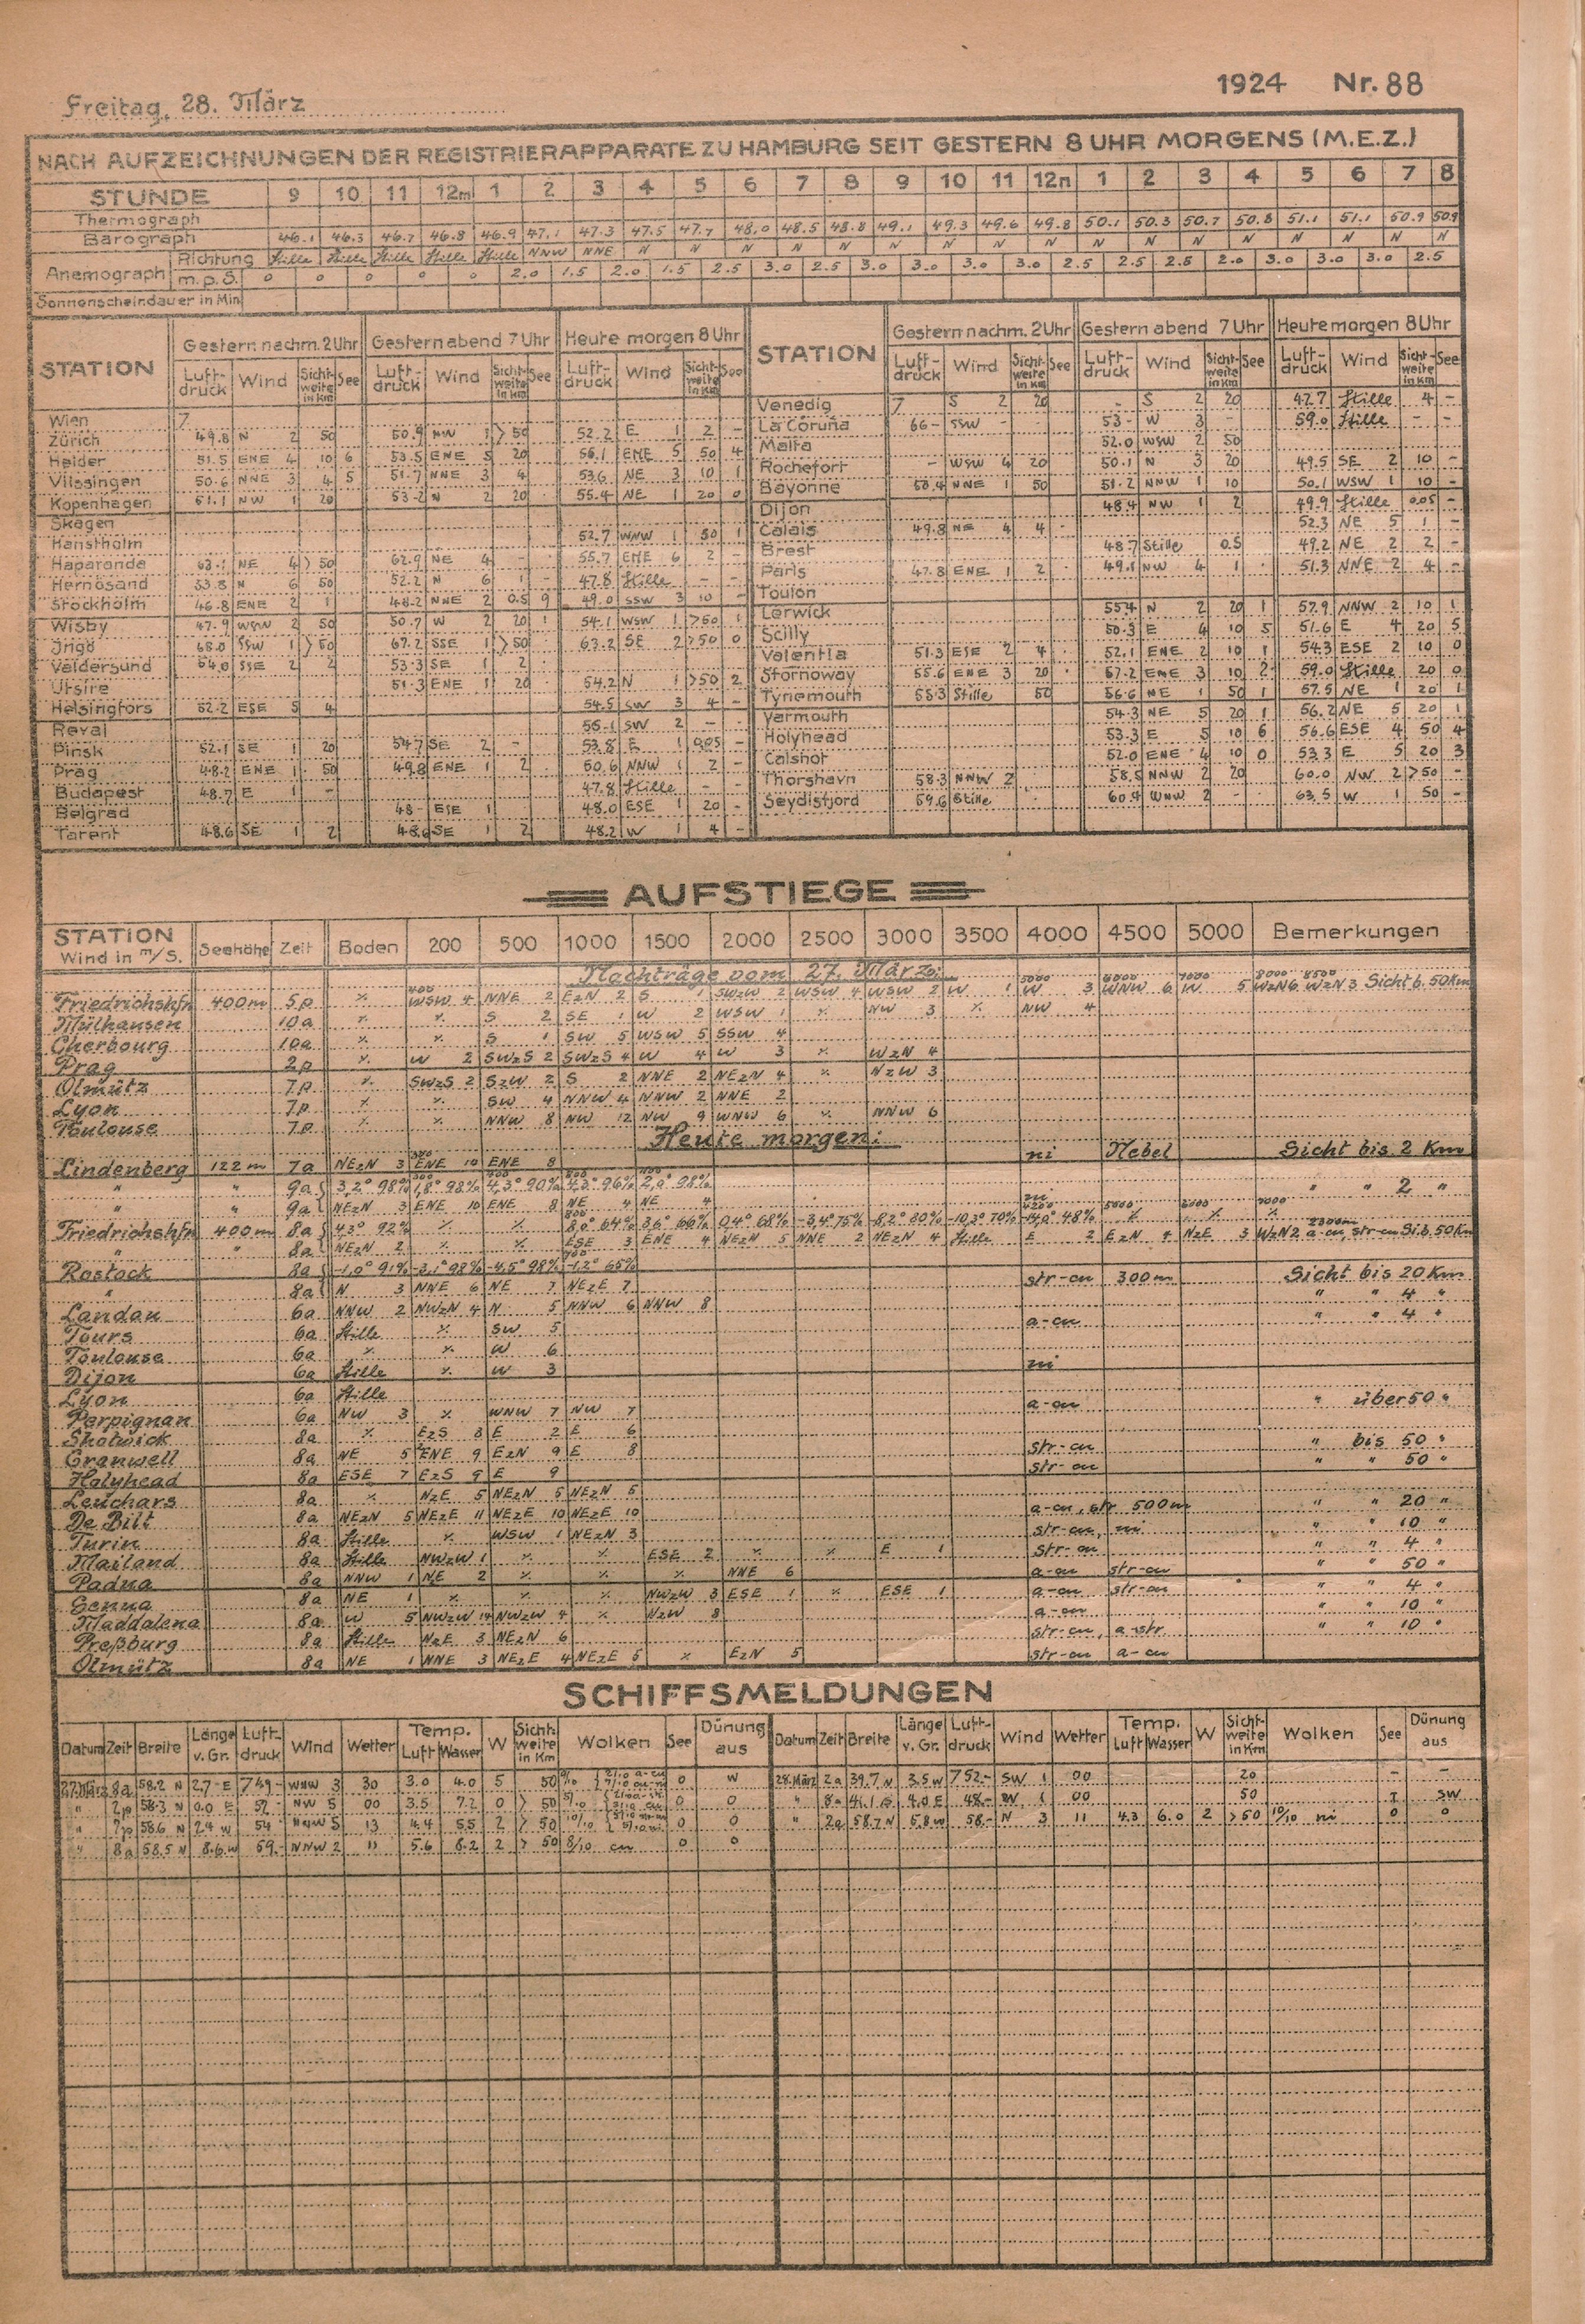 Freitag, 28. März 1924 Nr. 88
NACH AUFZEICHNUNGEN DER REGISTRIERAPPARATE ZU HAMBURG SEIT GESTERN 8 UHR MORGENS (M.E.Z.)
STUNDE 9 10 11 12m 1 2 3 4 5 6 7 8 9 10 11 12n 1 2 3 4 5 6 7 8
Thermograph
Barograph 46.1 46.3 46.7 46.8 46.9 47.1 47.3 47.5 47.7 48.0 48.5 48.8 49.1 49.3 49.6 49.8 50.1 50.3 50.7 50.8 51.1 51.1 50.9 50.9
Anemograph Richtung Stille Stille Stille Stille Stille NNW NNE N N N N N N N N N N N N N N N N N
m.p.S. 0 0 0 0 0 2.0 1.5 2.0 1.5 2.5 3.0 2.5 3.0 3.0 3.0 3.0 2.5 2.5 2.5 2.0 3.0 3.0 3.0 2.5
Sonnenscheindauer in Min
STATION Gestern nachm. 2 Uhr Gestern abend 7 Uhr Heute morgen 8 Uhr STATION Gestern nachm. 2 Uhr Gestern abend 7 Uhr Heute morgen 8 Uhr
Luft-druck Wind Sicht-weite in Km See Luft-druck Wind Sicht-weite in Km See Luft-druck Wind Sicht-weite in Km See Luft-druck Wind Sicht-weite in Km See Luft-druck Wind Sicht-weite in Km See Luft-druck Wind Sicht-weite in Km See
Wien 7 Venedig 7 S 2 20 - S 2 20 42.7 Stille 4 -
Zürich 49.8 N 2 50 50.9 NW 1 >50 52.2 E 1 2 - La Coruña 66- SSW - 53- W 3 - 59.0 Stille - -
Helder 51.5 ENE 4 10 6 53.5 ENE 5 20 56.1 ENE 5 50 4 Malta 52.0 WSW 2 50
Vlissingen 50.6 NNE 3 4 5 51.7 NNE 3 4 53.6 NE 3 10 1 Rochefort - WSW 4 20 50.1 N 3 20 49.5 SE 2 10 -
Kopenhagen 51.1 NW 1 20 53.2 N 2 20 55.4 NE 1 20 0 Bayonne 50.4 NNE 1 50 51.2 NNW 1 10 50.1 WSW 1 10 -
Skagen Dijon 48.4 NW 1 2 49.9 Stille 0.05 -
Hanstholm 52.7 WNW 1 50 1 Calais 49.8 NE 4 4 52.3 NE 5 1 -
Haparanda 63.1 NE 4 >50 62.9 NE 4 - 55.7 ENE 6 2 - Brest 48.7 Stille 0.5 49.2 NE 2 2 -
Hernösand 53.8 N 6 50 52.2 N 6 1 - 47.8 Stille - - Paris 47.8 ENE 1 2 49.1 NW 4 1 51.3 NNE 2 4 -
Stockholm 46.8 ENE 2 1 48.2 NNE 2 0.5 9 49.0 SSW 3 10 - Toulon
Wisby 47.9 WSW 2 50 50.7 W 2 20 1 54.1 WSW 1 >50 1 Lerwick 55.4 N 2 20 1 57.9 NNW 2 10 1
Ingö 68.0 SSW 1 >50 67.2 SSE 1 >50 63.2 SE 2 >50 0 Scilly 50.3 E 4 10 5 51.6 E 4 20 5
Valdersund 54.0 SSE 2 2 53.3 SE 1 2 Valentia 51.3 ESE 2 4 52.1 ENE 2 10 1 54.3 ESE 2 10 0
Utsire 51.3 ENE 1 20 54.2 N 1 >50 2 Stornoway 55.6 ENE 3 20 57.2 ENE 3 10 2 59.0 Stille 20 0
Helsingfors 52.2 ESE 5 4 54.5 SW 3 4 - Tynemouth 55.3 Stille 50 56.6 NE 1 50 1 57.5 NE 1 20 1
Reval 55.1 SW 2 - - Yarmouth 54.3 NE 5 20 1 56.2 NE 5 20 1
Pinsk 52.1 SE 1 20 54.7 SE 2 - 53.8 E 1 0.05 - Holyhead 53.3 E 5 10 6 56.6 ESE 4 50 4
Prag 48.2 ENE 1 50 49.8 ENE 1 2 50.6 NNW 1 2 - Calshot 52.0 ENE 4 10 0 53.3 E 5 20 3
Budapest 48.7 E 1 - 47.8 Stille - - Thorshavn 58.3 NNW 2 58.5 NNW 2 20 60.0 NW 2 >50 -
Belgrad 48- ESE 1 48.0 ESE 1 20 - Seydisfjord 59.6 Stille 60.4 WNW 2 - 63.5 W 1 50 -
Tarent 48.6 SE 1 2 48.6 SE 1 2 48.2 W 1 4 -
AUFSTIEGE
STATION Wind in m/s. Seehöhe Zeit Boden 200 500 1000 1500 2000 2500 3000 3500 4000 4500 5000 Bemerkungen
Nachträge vom 27. März:
400 5000 6000 7000 8000 8500
Friedrichshfn 400m 5p ٪ WSW 4 NNE 2 EzN 2 S 1 SWzW 2 WSW 4 WSW 2 W 1 W 3 WNW 6 W 5 WzN 6 WzN 3 Sicht b. 50Km
Mülhausen 10a ٪ ٪ S 2 SE 1 W 2 WSW 1 ٪ NW 3 ٪ NW 4
Cherbourg 10a ٪ ٪ S 1 SW 5 WSW 5 SSW 4
Prag 2p ٪ W 2 SWzS 2 SWzS 4 W 4 W 3 ٪ WzN 4
Olmütz 7p ٪ SWzS 2 SzW 2 S 2 NNE 2 NEzN 4 ٪ NzW 3
Lyon 7p ٪ ٪ SW 4 NNW 4 NNW 2 NNE 2
Toulouse 7p ٪ ٪ NNW 8 NW 12 NW 9 WNW 6 ٪ NNW 6
Heute morgen:
Lindenberg 122m 7a NEzN 3 ENE 10 ENE 8 ni Nebel Sicht bis 2 Km
" " 9a 3,2° 98% 1,8° 98% 4,3° 90% 4,3° 96% 2,0° 98% " " 2 "
" " 9a NEzN 3 ENE 10 ENE 8 NE 4 NE 4 ni
Friedrichshfn 400m 8a 4,3° 92% ٪ ٪ 8,0° 64% 3,6° 66% 0,4° 68% -3,4° 75% -8,2° 80% -10,3° 70% -14,0° 48% ٪ ٪ ٪
" " 8a NEzN 2 ٪ ٪ ESE 3 ENE 4 NEzN 5 NNE 2 NEzN 4 Stille E 2 EzN 4 NzE 3 WzN 2 a-cu, str-cu Si.b. 50Km
Rostock 8a -1,0° 91% -3,1° 98% -4,5° 98% -1,2° 65%
" 8a N 3 NNE 6 NE 7 NEzE 7 str-cu 300m Sicht bis 20 Km
London 6a NNW 2 NWzN 4 N 5 NNW 6 NNW 8 " " 4 "
Tours 6a Stille ٪ SW 5 a-cu " " 4 "
Toulouse 6a ٪ ٪ W 6
Dijon 6a Stille ٪ W 3 ni
Lyon 6a Stille
Perpignan 6a NW 3 ٪ WNW 7 NW 7 a-cu " über 50 "
Shotwick 8a ٪ EzS 8 E 2 E 6
Cranwell 8a NE 5 ENE 9 EzN 9 E 8 str-cu " bis 50 "
Holyhead 8a ESE 7 EzS 9 E 9 str-cu " " 50 "
Leuchars 8a ٪ NzE 5 NEzN 5 NEzN 5
De Bilt 8a NEzN 5 NEzE 11 NEzE 10 NEzE 10 a-cu, str 500m " " 20 "
Turin 8a Stille ٪ WSW 1 NEzN 3 str-cu, ni " " 10 "
Mailand 8a Stille NWzW 1 ٪ ٪ ESE 2 ٪ ٪ E 1 str-cu " " 4 "
Padua 8a NNW 1 NE 2 ٪ ٪ ٪ NNE 6 a-cu str-cu " " 50 "
Genua 8a NE 1 ٪ ٪ ٪ NWzW 3 ESE 1 ٪ ESE 1 a-cu str-cu " " 4 "
Maddalena 8a W 5 NWzW 14 NWzW 4 ٪ NzW 8 a-cu " " 10 "
Preßburg 8a Stille NzE 3 NEzN 6 str-cu, a-str " " 10 "
Olmütz 8a NE 1 NNE 3 NEzE 4 NEzE 5 ٪ EzN 5 str-cu a-cu
SCHIFFSMELDUNGEN
Datum Zeit Breite Länge v. Gr. Luft-druck Wind Wetter Temp. Luft Wasser W Sicht-weite in Km Wolken See Dünung aus Datum Zeit Breite Länge v. Gr. Luft-druck Wind Wetter Temp. Luft Wasser W Sicht-weite in Km Wolken See Dünung aus
27.März 8a 58.2 N 2.7 E 749- WNW 3 30 3.0 4.0 5 50 0 W 28.März 2a 39.7 N 3.5 W 752.- SW 1 00 20 - -
" 2p 58.3 N 0.0 E 52- NW 5 00 3.5 7.2 0 > 50 0 0 " 8a 41.1 4.0 E 48.- W 1 00 50 1 SW
" 7p 58.6 N 2.4 W 54 NNW 5 13 4.4 5.5 2 > 50 10/10 0 0 " 2a 58.7 N 5.8 W 58.- N 3 11 4.3 6.0 2 >50 10/10 ni 0 0
" 8a 58.5 N 8.6 W 59.- NNW 2 11 5.6 8.2 2 > 50 8/10 cu 0 0